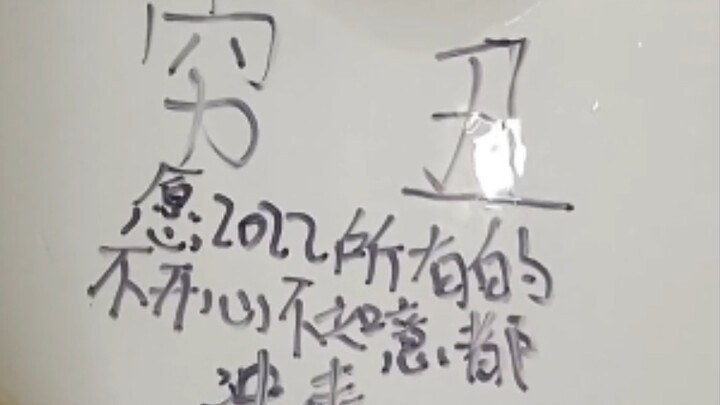 穷 丑
愿2022所有的
不开心不如意都